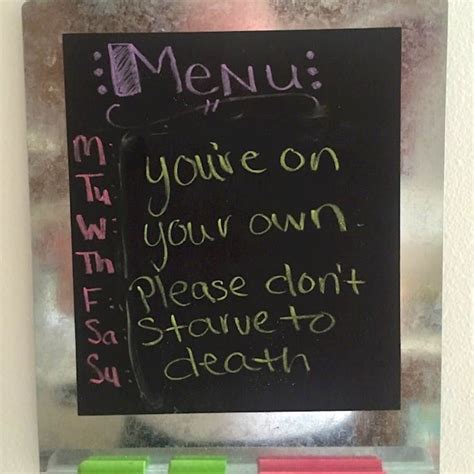 Menu:
M: you're on
Tu:
W: your own.
Th: Please don't
F:
Sa: starve to
Su: death